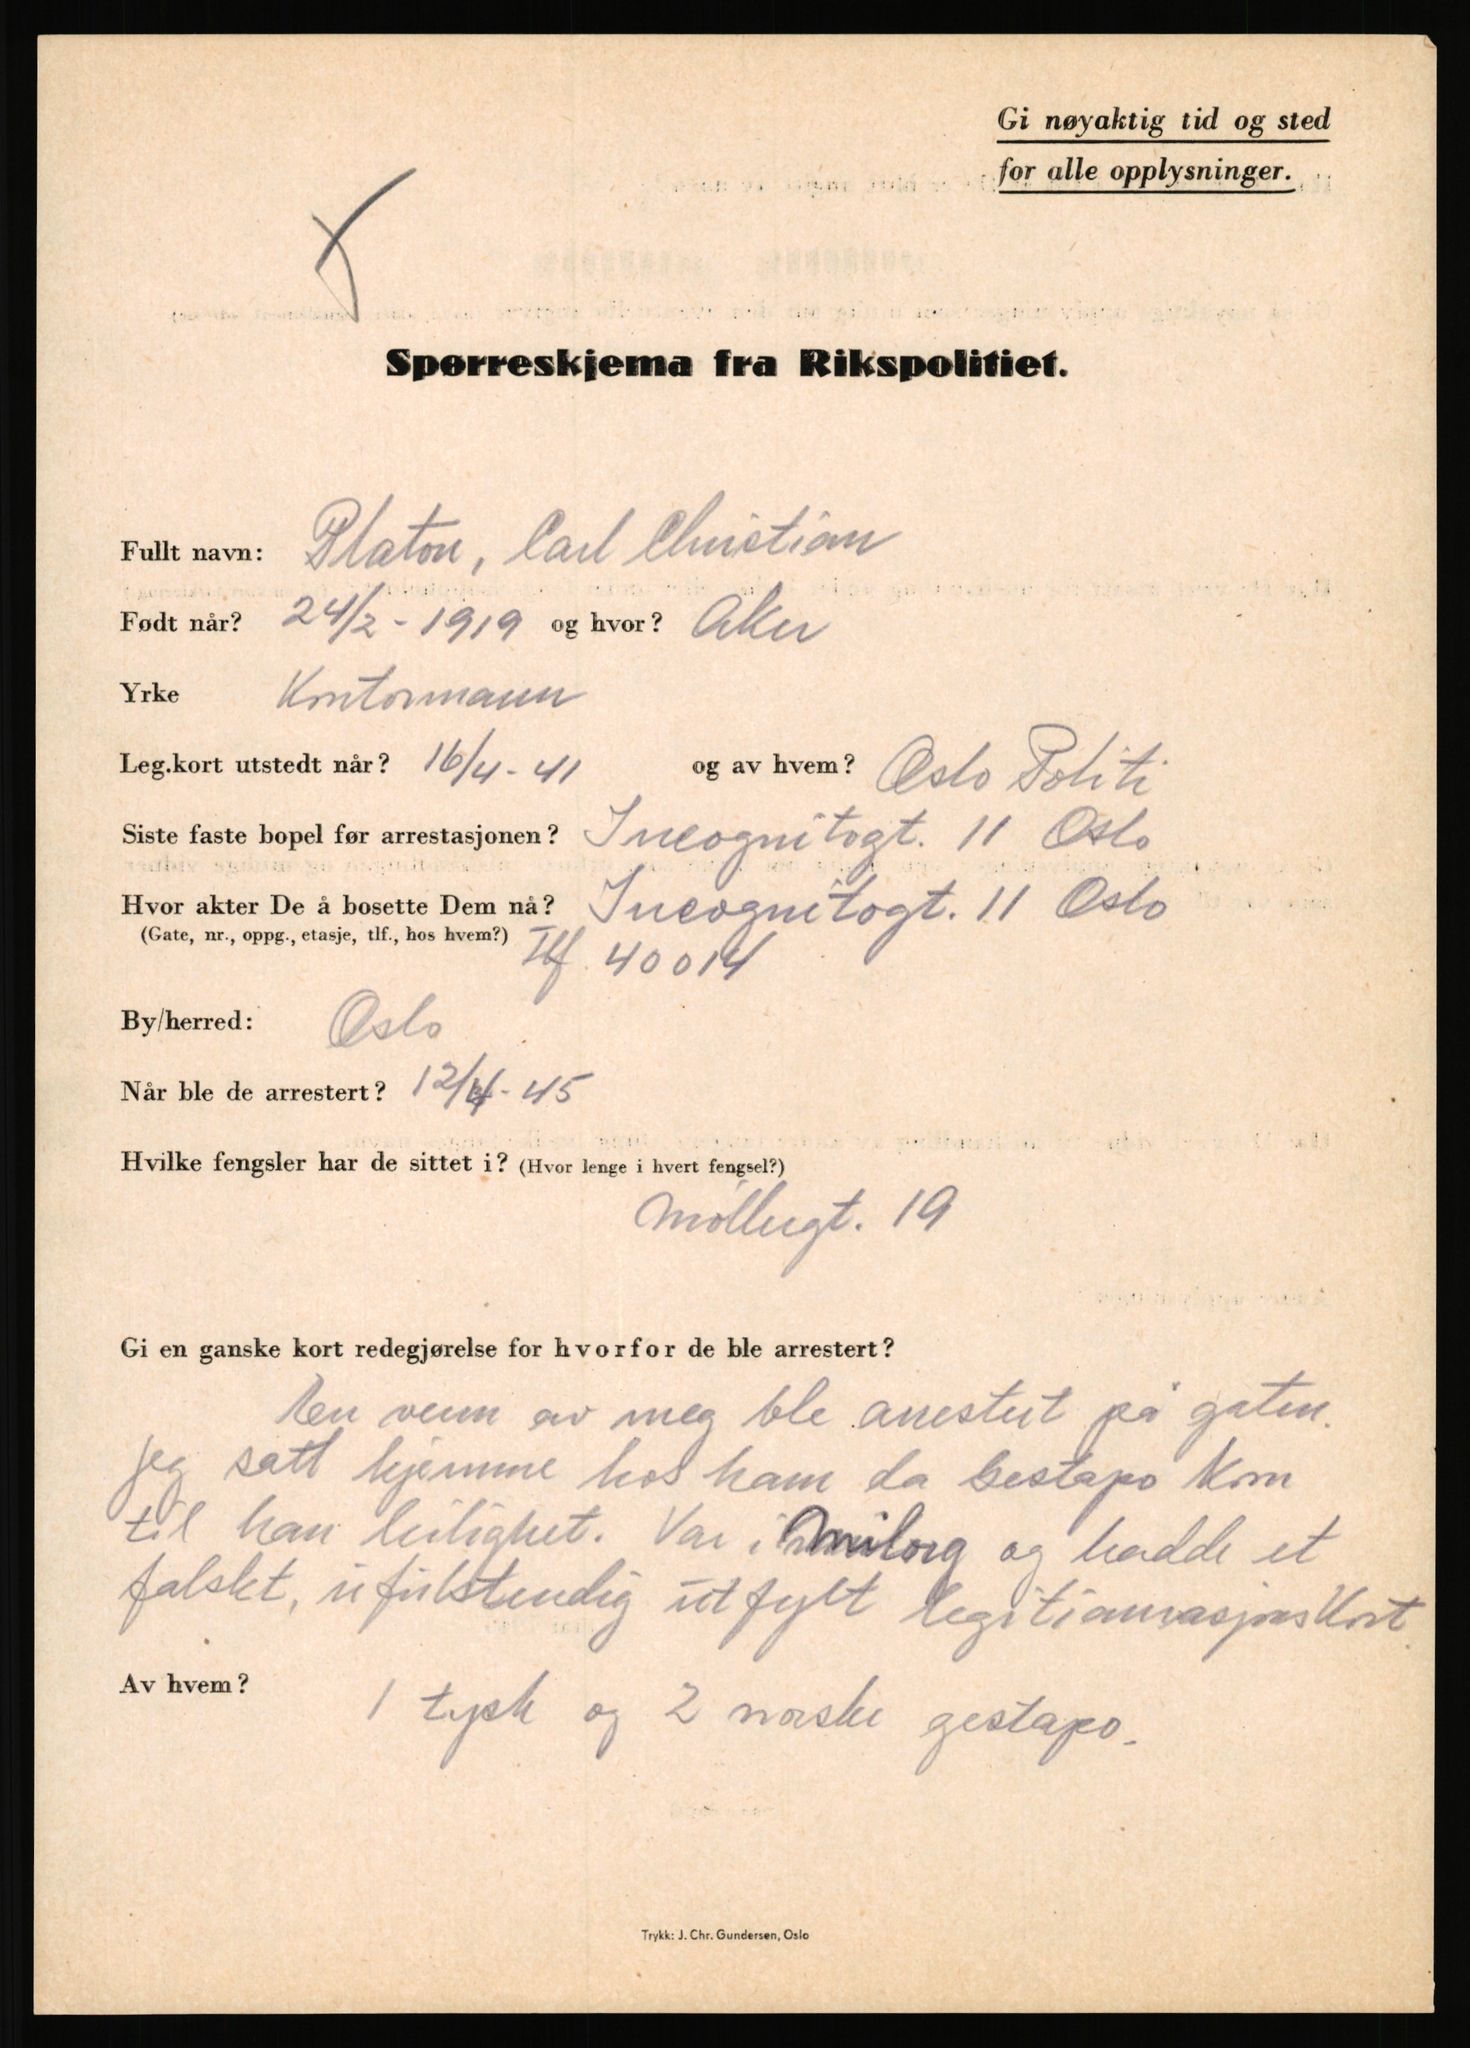 Gi nøyaktig tid og sted
for alle opplysninger.
Spørreskjema fra Rikspolitiet.
Fullt navn: Platou, Carl Christian
Født når? 24/2 - 1919 og hvor? Aker
Yrke Kontormann
Leg.kort utstedt når? 16/4 - 41 og av hvem? Oslo Politi
Siste faste bopel før arrestasjonen? Incognitogt. 11 Oslo
Hvor akter De å bosette Dem nå? Incognitogt. 11 Oslo
(Gate, nr., oppg., etasje, tlf., hos hvem?) Tlf. 40014
By/herred: Oslo
Når ble de arrestert? 12/4 - 45
Hvilke fengsler har de sittet i? (Hvor lenge i hvert fengsel?)
Møllergt. 19
Gi en ganske kort redegjørelse for hvorfor de ble arrestert?
En venn av meg ble arrestert på gaten.
Jeg satt hjemme hos ham da Gestapo kom
til han leilighet. Var i milorg og hadde et
falskt, ufulstendig utfylt legitiamasjonskort.
Av hvem? 1 tysk og 2 norske gestapo.
Trykk: J. Chr. Gundersen, Oslo